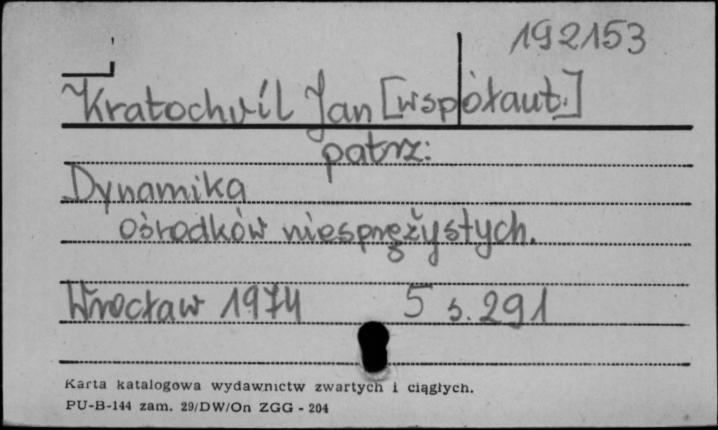 192153
Kratochvíl Jan [współaut.]
patrz:
Dynamika
ośrodków niesprężystych.
Wrocław 1974 5 s. 291
Karta katalogowa wydawnictw zwartych i ciągłych.
PU-B-144 zam. 29/DW/On ZGG - 204